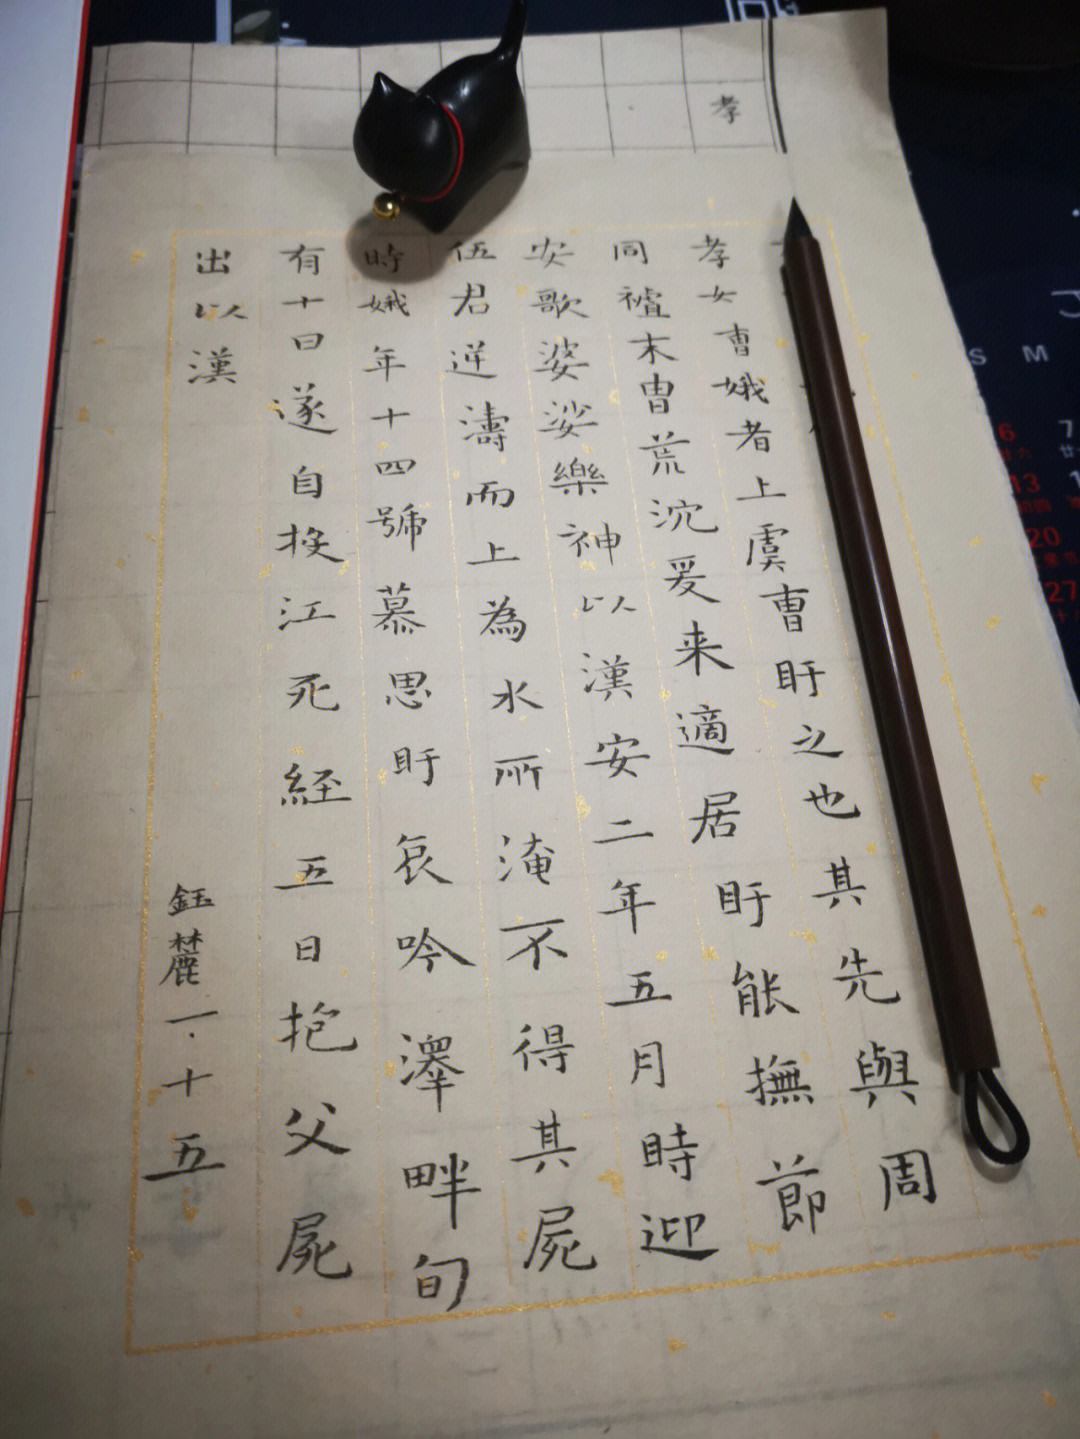 孝
孝女曺娥者上虞曺盱之也其先與周
同䄍末冑荒沈爰来適居盱能撫節
安歌婆娑樂神以漢安二年五月時迎
伍君逆濤而上為水所淹不得其屍
時娥年十四號慕思盱哀吟澤畔旬
有十日遂自投江死経五日抱父屍
出以漢
鈺麓一·十五
S M
6 7
13
20
27